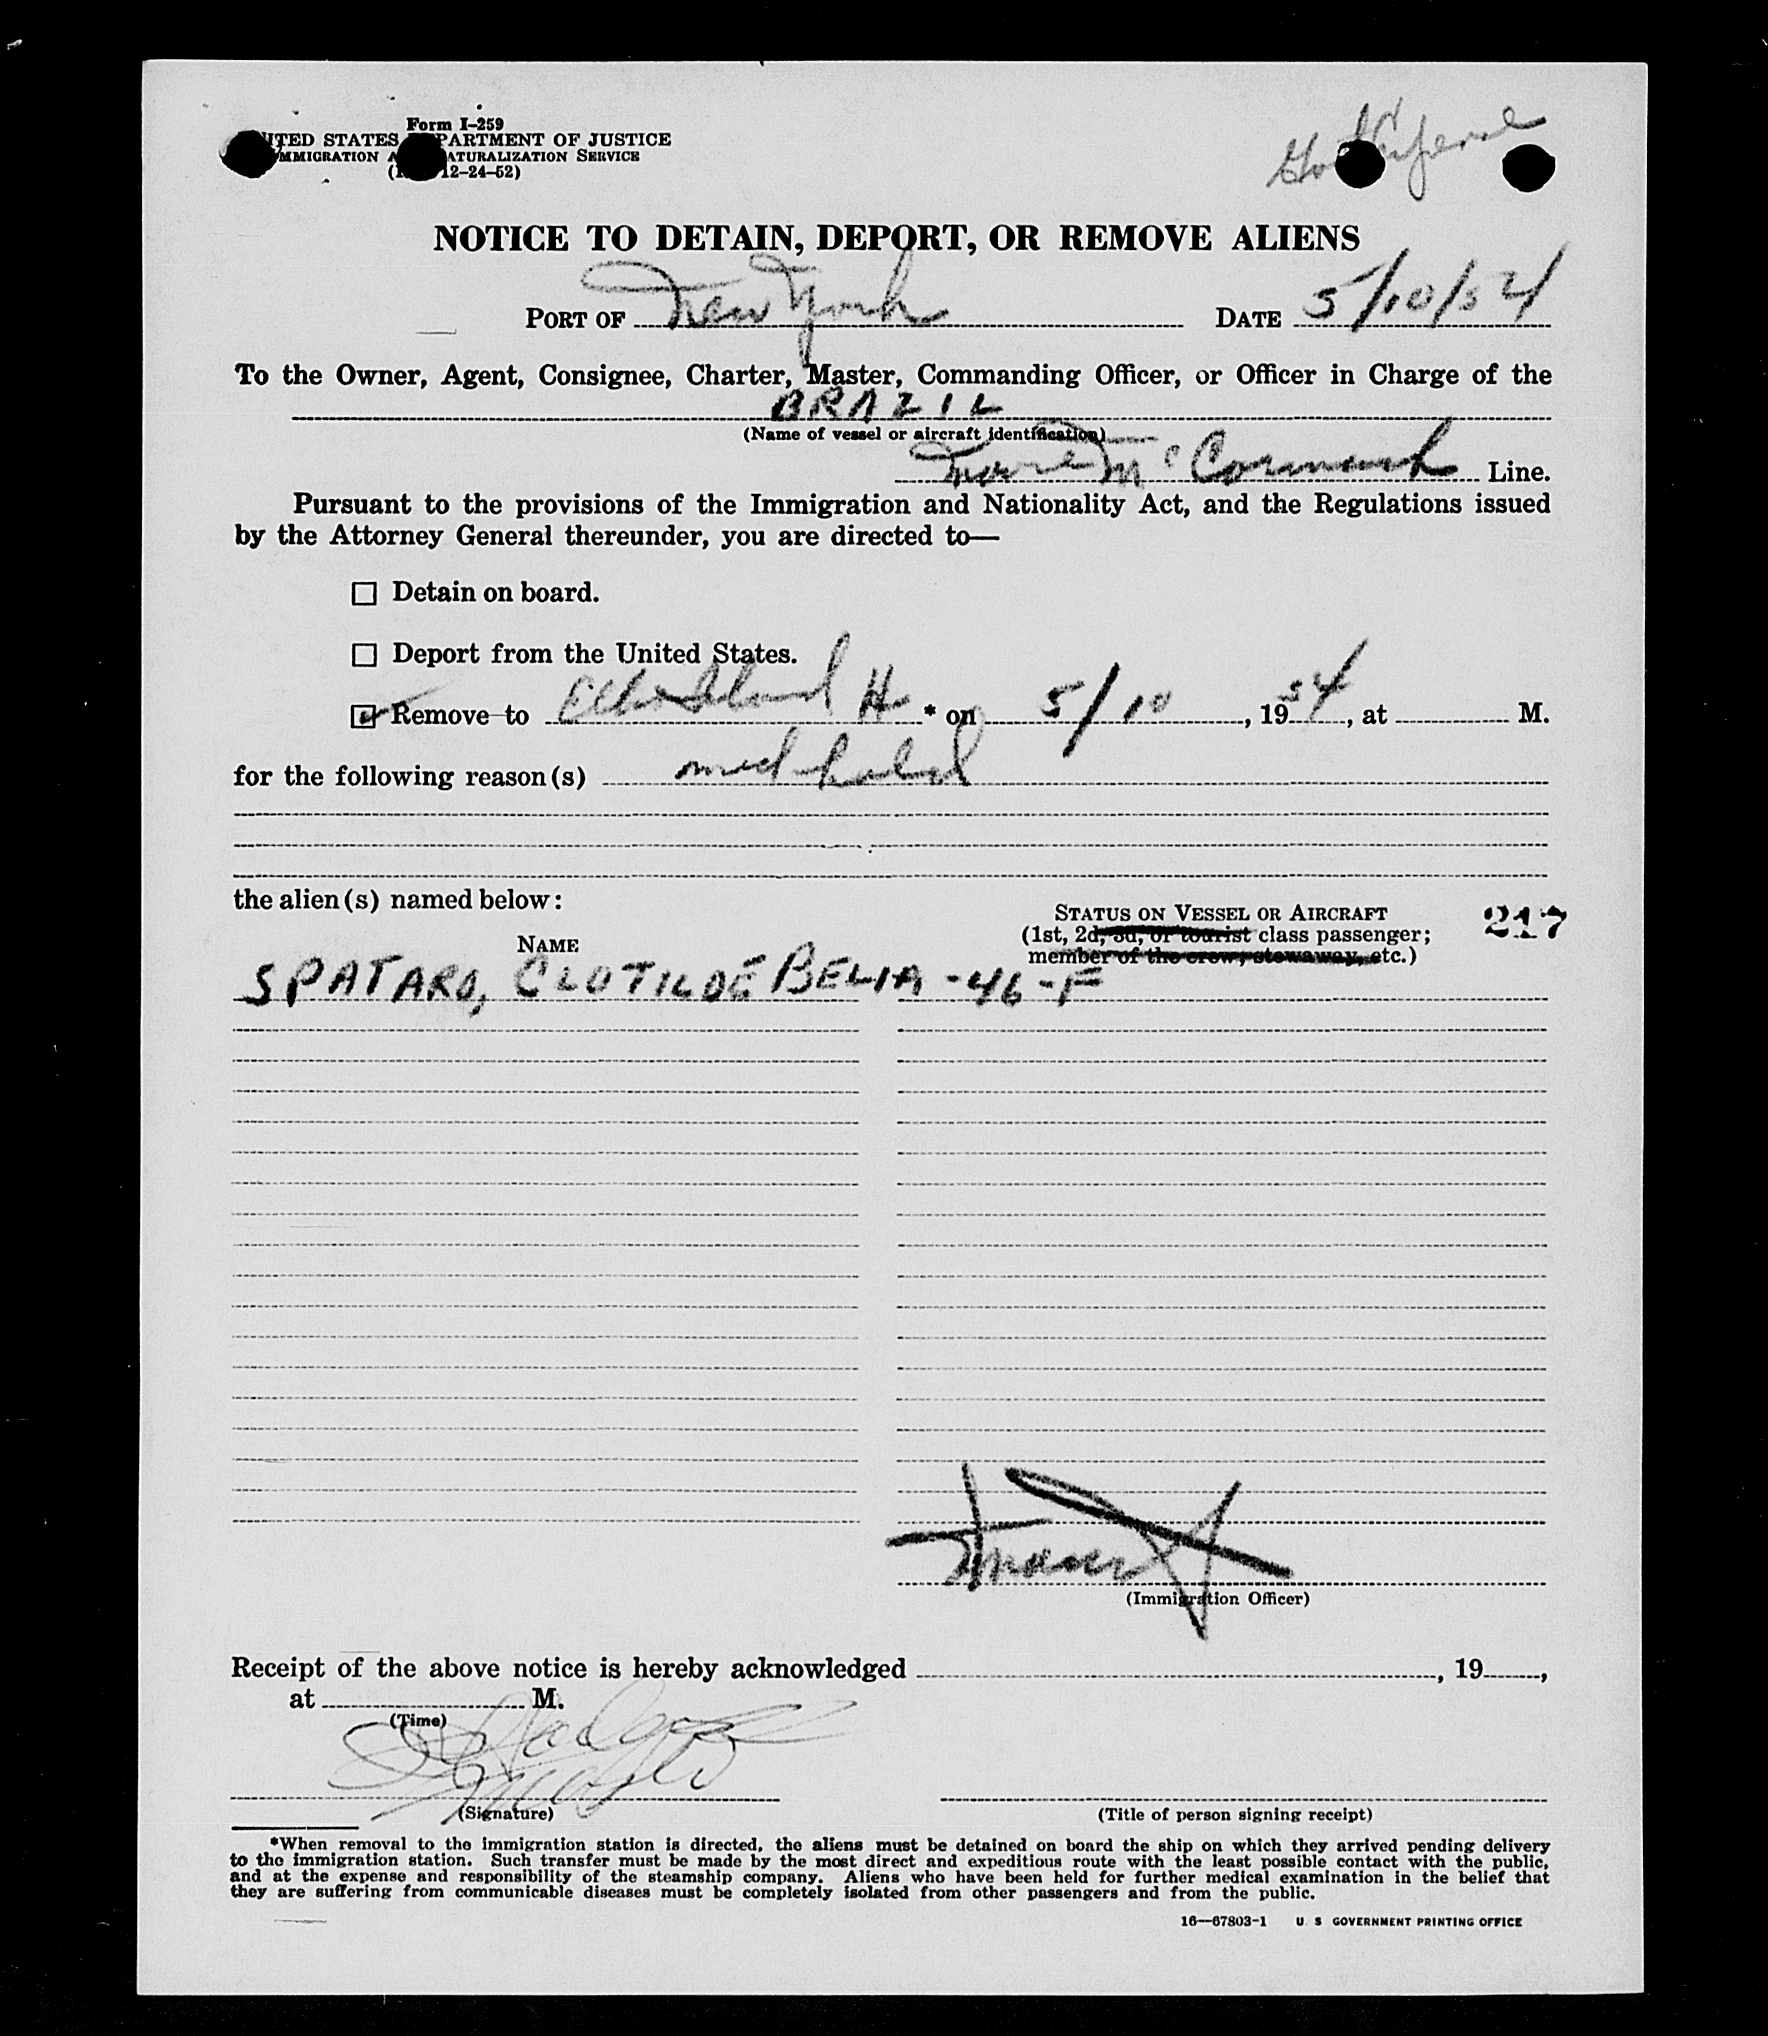 Form I-259
UNITED STATES DEPARTMENT OF JUSTICE
IMMIGRATION AND NATURALIZATION SERVICE
12-24-52)
NOTICE TO DETAIN, DEPORT, OR REMOVE ALIENS
PORT OF New York DATE 5/10/54
To the Owner, Agent, Consignee, Charter, Master, Commanding Officer, or Officer in Charge of the
BRAZIL
(Name of vessel or aircraft identification)
Moore McCormack Line.
Pursuant to the provisions of the Immigration and Nationality Act, and the Regulations issued
by the Attorney General thereunder, you are directed to—
☐ Detain on board.
☐ Deport from the United States.
☑ Remove to Ellis Island H * on 5/10, 1954, at M.
for the following reason(s) med hold
the alien(s) named below:
STATUS ON VESSEL OR AIRCRAFT 217
(1st, 2d, 3d, or tourist class passenger;
NAME
member of the crew; stowaway, etc.)
SPATARO, CLOTILDE BELIA - 46 - F
(Immigration Officer)
Receipt of the above notice is hereby acknowledged , 19 ,
at M.
(Time)
(Signature) (Title of person signing receipt)
*When removal to the immigration station is directed, the aliens must be detained on board the ship on which they arrived pending delivery
to the immigration station. Such transfer must be made by the most direct and expeditious route with the least possible contact with the public,
and at the expense and responsibility of the steamship company. Aliens who have been held for further medical examination in the belief that
they are suffering from communicable diseases must be completely isolated from other passengers and from the public.
16—67803-1 U S GOVERNMENT PRINTING OFFICE